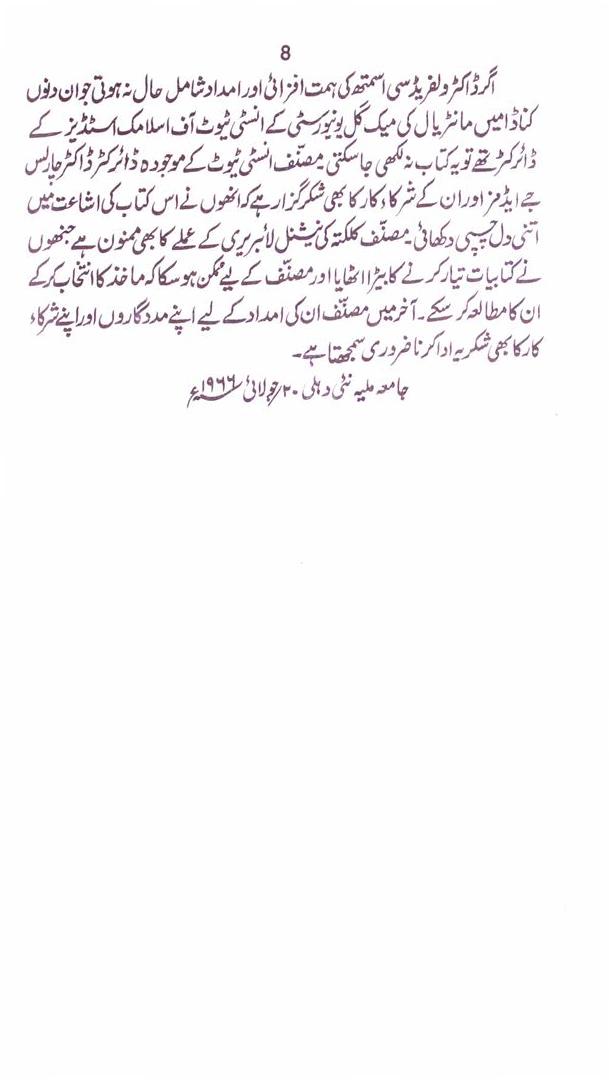 8
اگر ڈاکٹر ولفریڈ سی اسمتھ کی ہمت افزائی اور امداد شامل حال نہ ہوتی جو ان دنوں
کناڈا میں مانٹریال کی میک گل یونیورسٹی کے انسٹی ٹیوٹ آف اسلامک اسٹڈیز کے
ڈائرکٹر تھے تو یہ کتاب نہ لکھی جا سکتی۔ مصنّف انسٹی ٹیوٹ کے موجودہ ڈائرکٹر ڈاکٹر چارلس
جے ایڈمز اور ان کے شرکاء کار کا بھی شکر گزار ہے کہ انھوں نے اس کتاب کی اشاعت میں
اتنی دل چسپی دکھائی۔ مصنّف کلکتہ کی نیشنل لائبریری کے عملے کا بھی ممنون ہے جنھوں
نے کتابیات تیار کرنے کا بیڑا اٹھایا اور مصنّف کے لیے ممکن ہو سکا کہ ماخذ کا انتخاب کر کے
ان کا مطالعہ کر سکے۔ آخر میں مصنّف ان کی امداد کے لیے اپنے مددگاروں اور اپنے شرکاء
کار کا بھی شکریہ ادا کرنا ضروری سمجھتا ہے۔
جامعہ ملیہ نئی دہلی ۲۰؍جولائی ۱۹۶۶ء